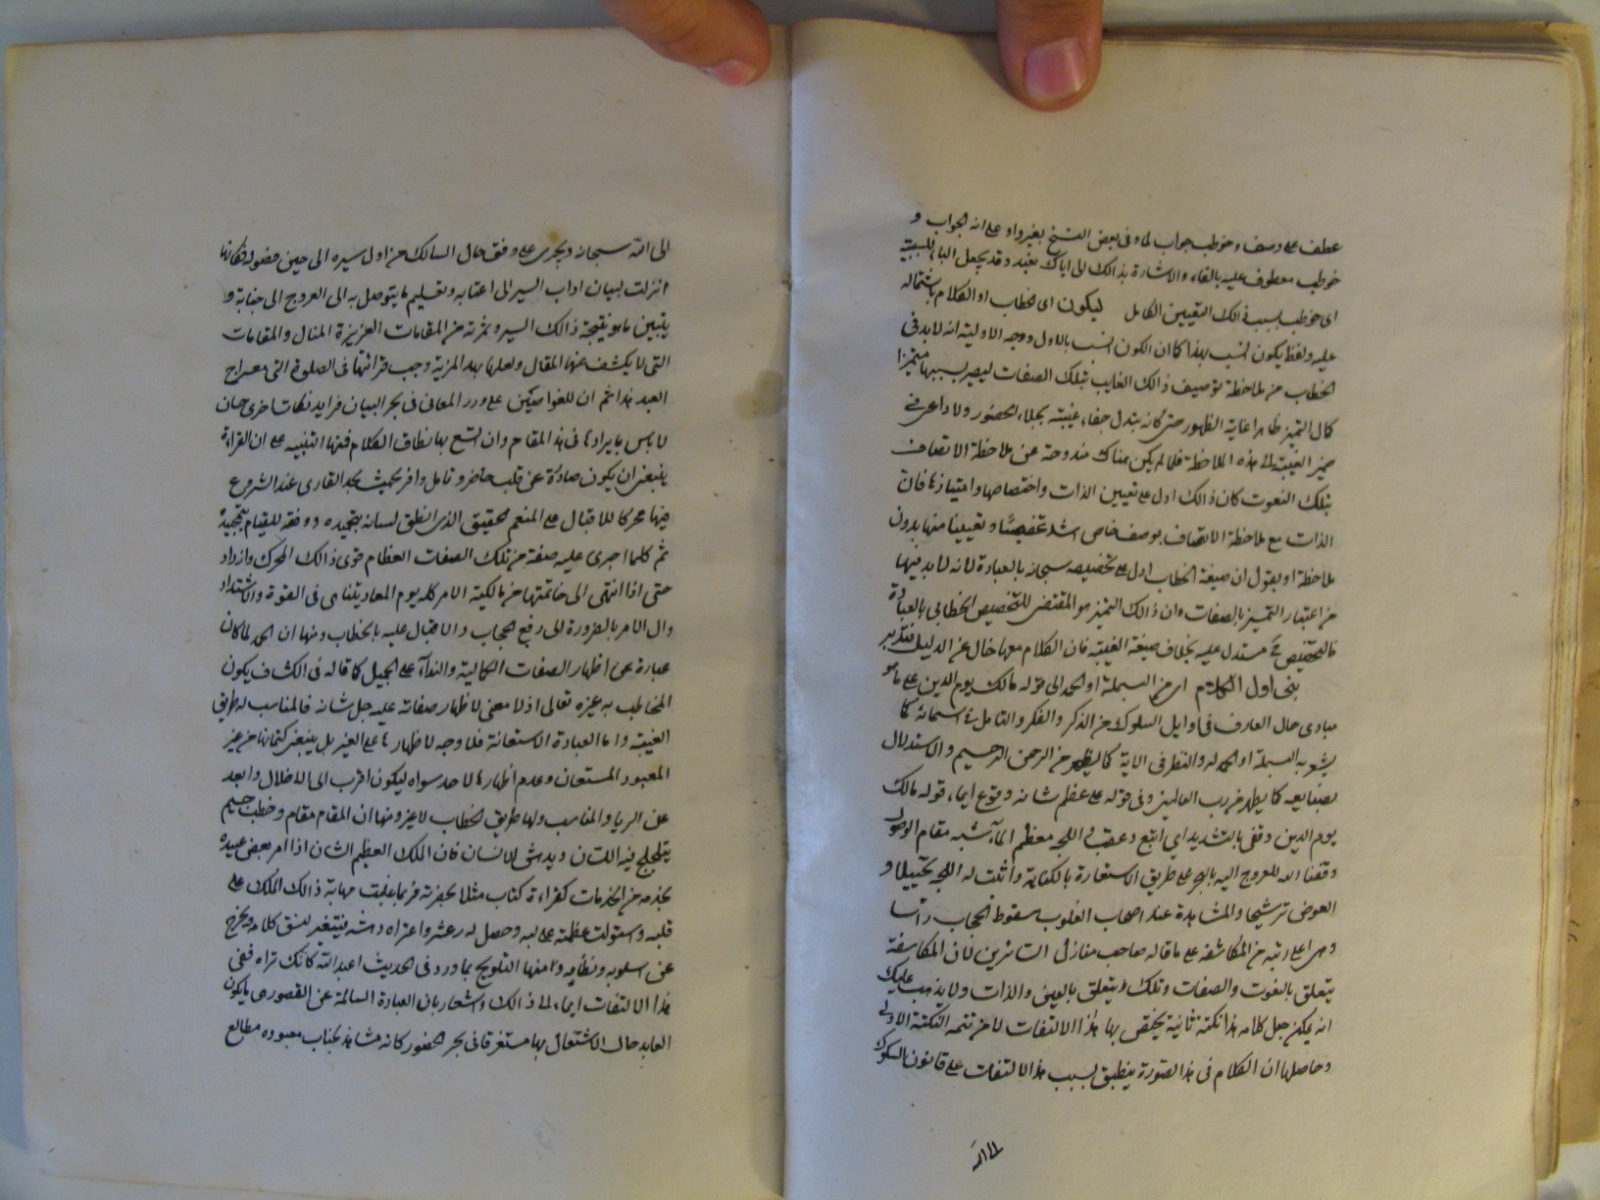 عطف على وصف وخوطب جواب لما وفى بعض النسخ بغير واو على انه الجواب و
خوطب معطوف عليه بالفاء والاشارة بذالك الى اياك نعبد وقد يجعل الباء للسببية
اى خوطب بسبب ذالك التعيين الكامل ليكون اى الخطاب او الكلام باشتماله
عليه ولفظ يكون انسب بهذا كما ان الكون انسب بالاول ووجه الاولية انه لا بد فى
الخطاب من ملاحظة توصيف ذالك الغايب بتلك الصفات ليصير بسببها متميزا
كمال التميز ظاهرا غاية الظهور حتى كانه يتدل خفاء غيبته بجلاء الحضور ولا داعى فى
ضمير الغيبة الى هذه الملاحظة فلما لم يكن هناك مندوحة عن ملاحظة الاتصاف
بتلك النعوت كان ذالك ادل على تعيين الذات واختصاصها وامتيازها فان
الذات مع ملاحظة الاتصاف بوصف خاص اشد تخصيصا وتعيينا منها بدون
ملاحظة او يقول ان صيغة الخطاب ادل على تخصيصه سبحانه بالعبادة لانه لا بد فيها
من اعتبار التميز بالصفات وان ذالك التميز هو المقتضى للتخصيص الخطابى بالعبادة
فالتخصيص ح مستدل عليه بخلاف صيغة الغيبة فان الكلام معها خال عن الدليل فتدبر
بنى اول الكلام اى من البسملة او الحمد الى قوله مالك يوم الدين على ما هو
مبادى حال العارف فى اوايل السلوك من الذكر والفكر والتامل فى اسمائه كما
يشعر به البسملة او الحمد له والنظر فى الاية كما يظهر من الرحمن الرحيم والاستدلال
بصنايعه كما يظهر من رب العالمين وفى قوله على عظم شانه وقوع ايماء قوله مالك
يوم الدين وقفى بالتشديد اى اتبع وعقب اللجه معظم الماء شبه مقام الوصول
وفقنا الله للعروج اليه بالبحر على طريق الاستعارة بالكناية واثبت له اللجه تخييلا و
الغوض ترشيحا والمشاهدة عند اصحاب القلوب سقوط الحجاب راسا
وهى اعلى رتبه من المكاشفه على ما قاله صاحب منازل السائرين لان المكاشفة
يتعلق بالنعوت والصفات وتلك يتعلق بالعين والذات ولا يذهب عليك
انه يمكن جعل كلامه هذا نكتة ثانية يختص بها هذا الالتفات لا من تتمه النكتة الاولى
وحاصلها ان الكلام فى هذا الصورة ينطبق بسبب هذا الالتفات على قانون السلوك
الى الله
الى الله سبحانه ويجرى على وفق حال السالك من اول سيره الى حين فكانها
انزلت لبيان اداب السير الى اعتابه وتعليم ما يتوصل به الى العروج الى جنابة و
يتبين ما هو نتيجة ذالك السير وثمرته من المقامات العزيزة المنال والمقامات
التى لا يكشف عنها المقال ولعلها بهذ المزية وجب قرائتها فى الصلوة التى معراج
العبد هذا ثم ان للغواصين على درر المعانى فى بحر البيان فرايد نكات اخرى حسان
لا باس بايرادها فى هذ المقام وان اتسع بها نطاق الكلام فمنها التنبيه على ان القراءة
ينبغى ان يكون صادرة عن قلب حاضر وتامل وافر بحيث يجد القارى عند الشروع
فيها محركا للاقبال على المنعم الحقيق الذى انطلق لسانه بتحميده ووفقه للقيام بتمجيده
ثم كلما اجرى عليه صفة من تلك الصفات العظام قوى ذالك المحرك وازداد
حتى اذا انتهى الى خاتمتها من مالكية الامر كله يوم المعاد يتناهى فى القوة والاشتداد
وال الامر بالضرورة الى رفع الحجاب والاقبال عليه بالخطاب ومنها ان الحمد لما كان
عبارة عن اظهار الصفات الكمالية والنداء على الجميل كما قاله فى الكشاف يكون
المخاطب به غيره تعالى اذ لا معنى لاظهار صفاته عليه جل شانه فالمناسب له طريق
الغيبة واما العبادة الاستعانة فلا وجه لاظهارها على الغير بل ينبغى كتمانها من غير
المعبود المستعان وعدم اظهارها لاحد سواه ليكون اقرب الى الاخلال وابعد
عن الريا والمناسب ولها طريق الخطاب لا غير ومنها ان المقام مقام وخطب جسيم
يتلجلج فيه اللسان ويدهش الانسان فان الملك العظيم الشان اذا امر بعض عبيده
بخدمه من الخدمات كقراءة كتاب مثلا بحضرته فربما غلبت مهابة ذالك الملك على
قلبه واستولت عظمته على لبه وحصل له رعشه واعتراه دهشه فيتغير نسق كلامه ويخرج
عن اسلوبه ونظامه ومنها التلويح بما ورد فى الحديث اعبد الله كانك تراه ففى
هذا الالتفات ايماء الى ذالك واشعار بان العبادة السالمة عن القصور هى ما يكون
العابد حال الاشتغال بها مستغرقا فى بحر الحضور كانه مشاهد لجناب معبوده مطالع